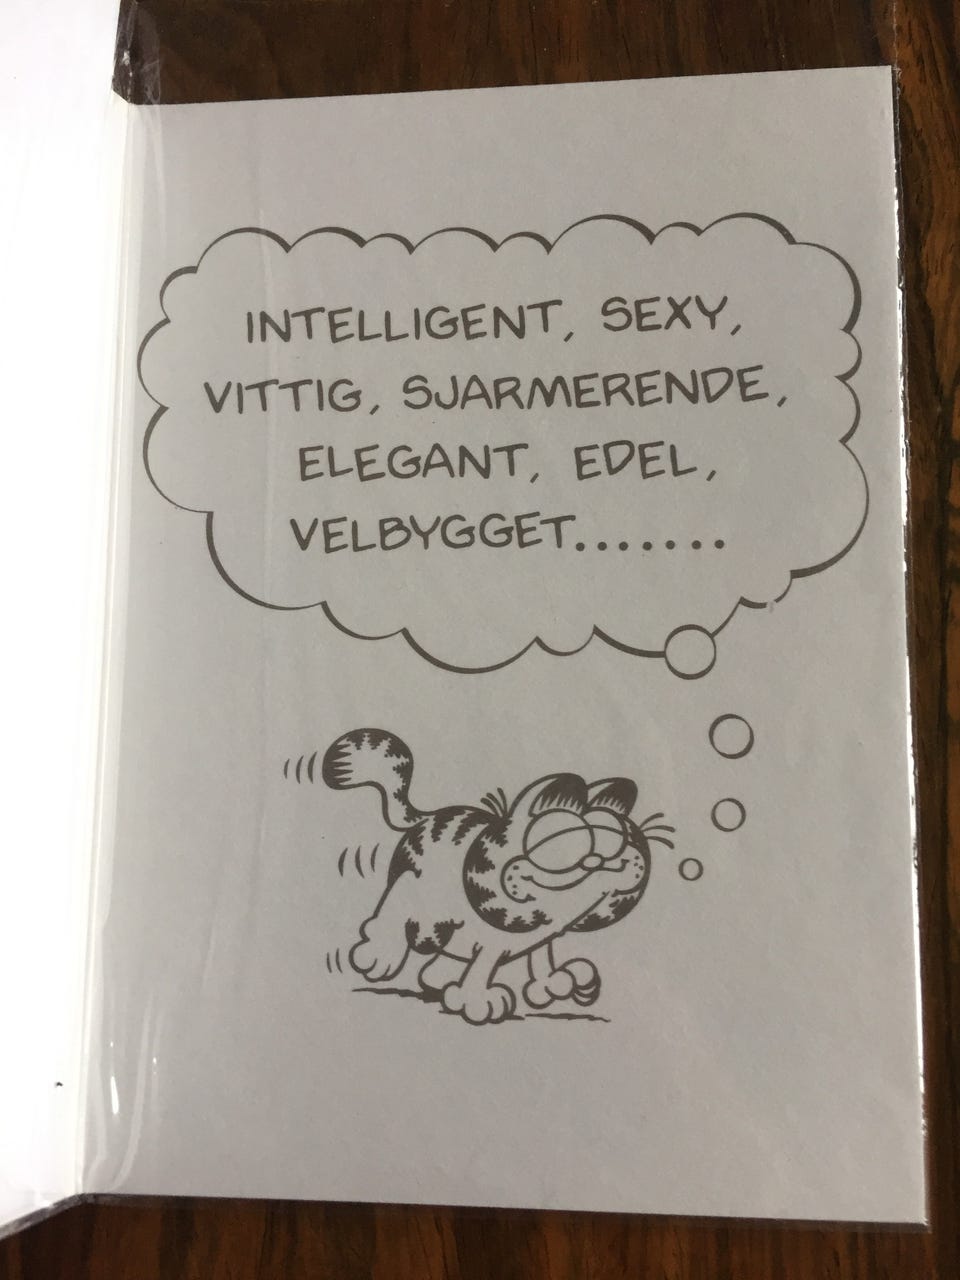 INTELLIGENT, SEXY,
VITTIG, SJARMERENDE,
ELEGANT, EDEL,
VELBYGGET.......